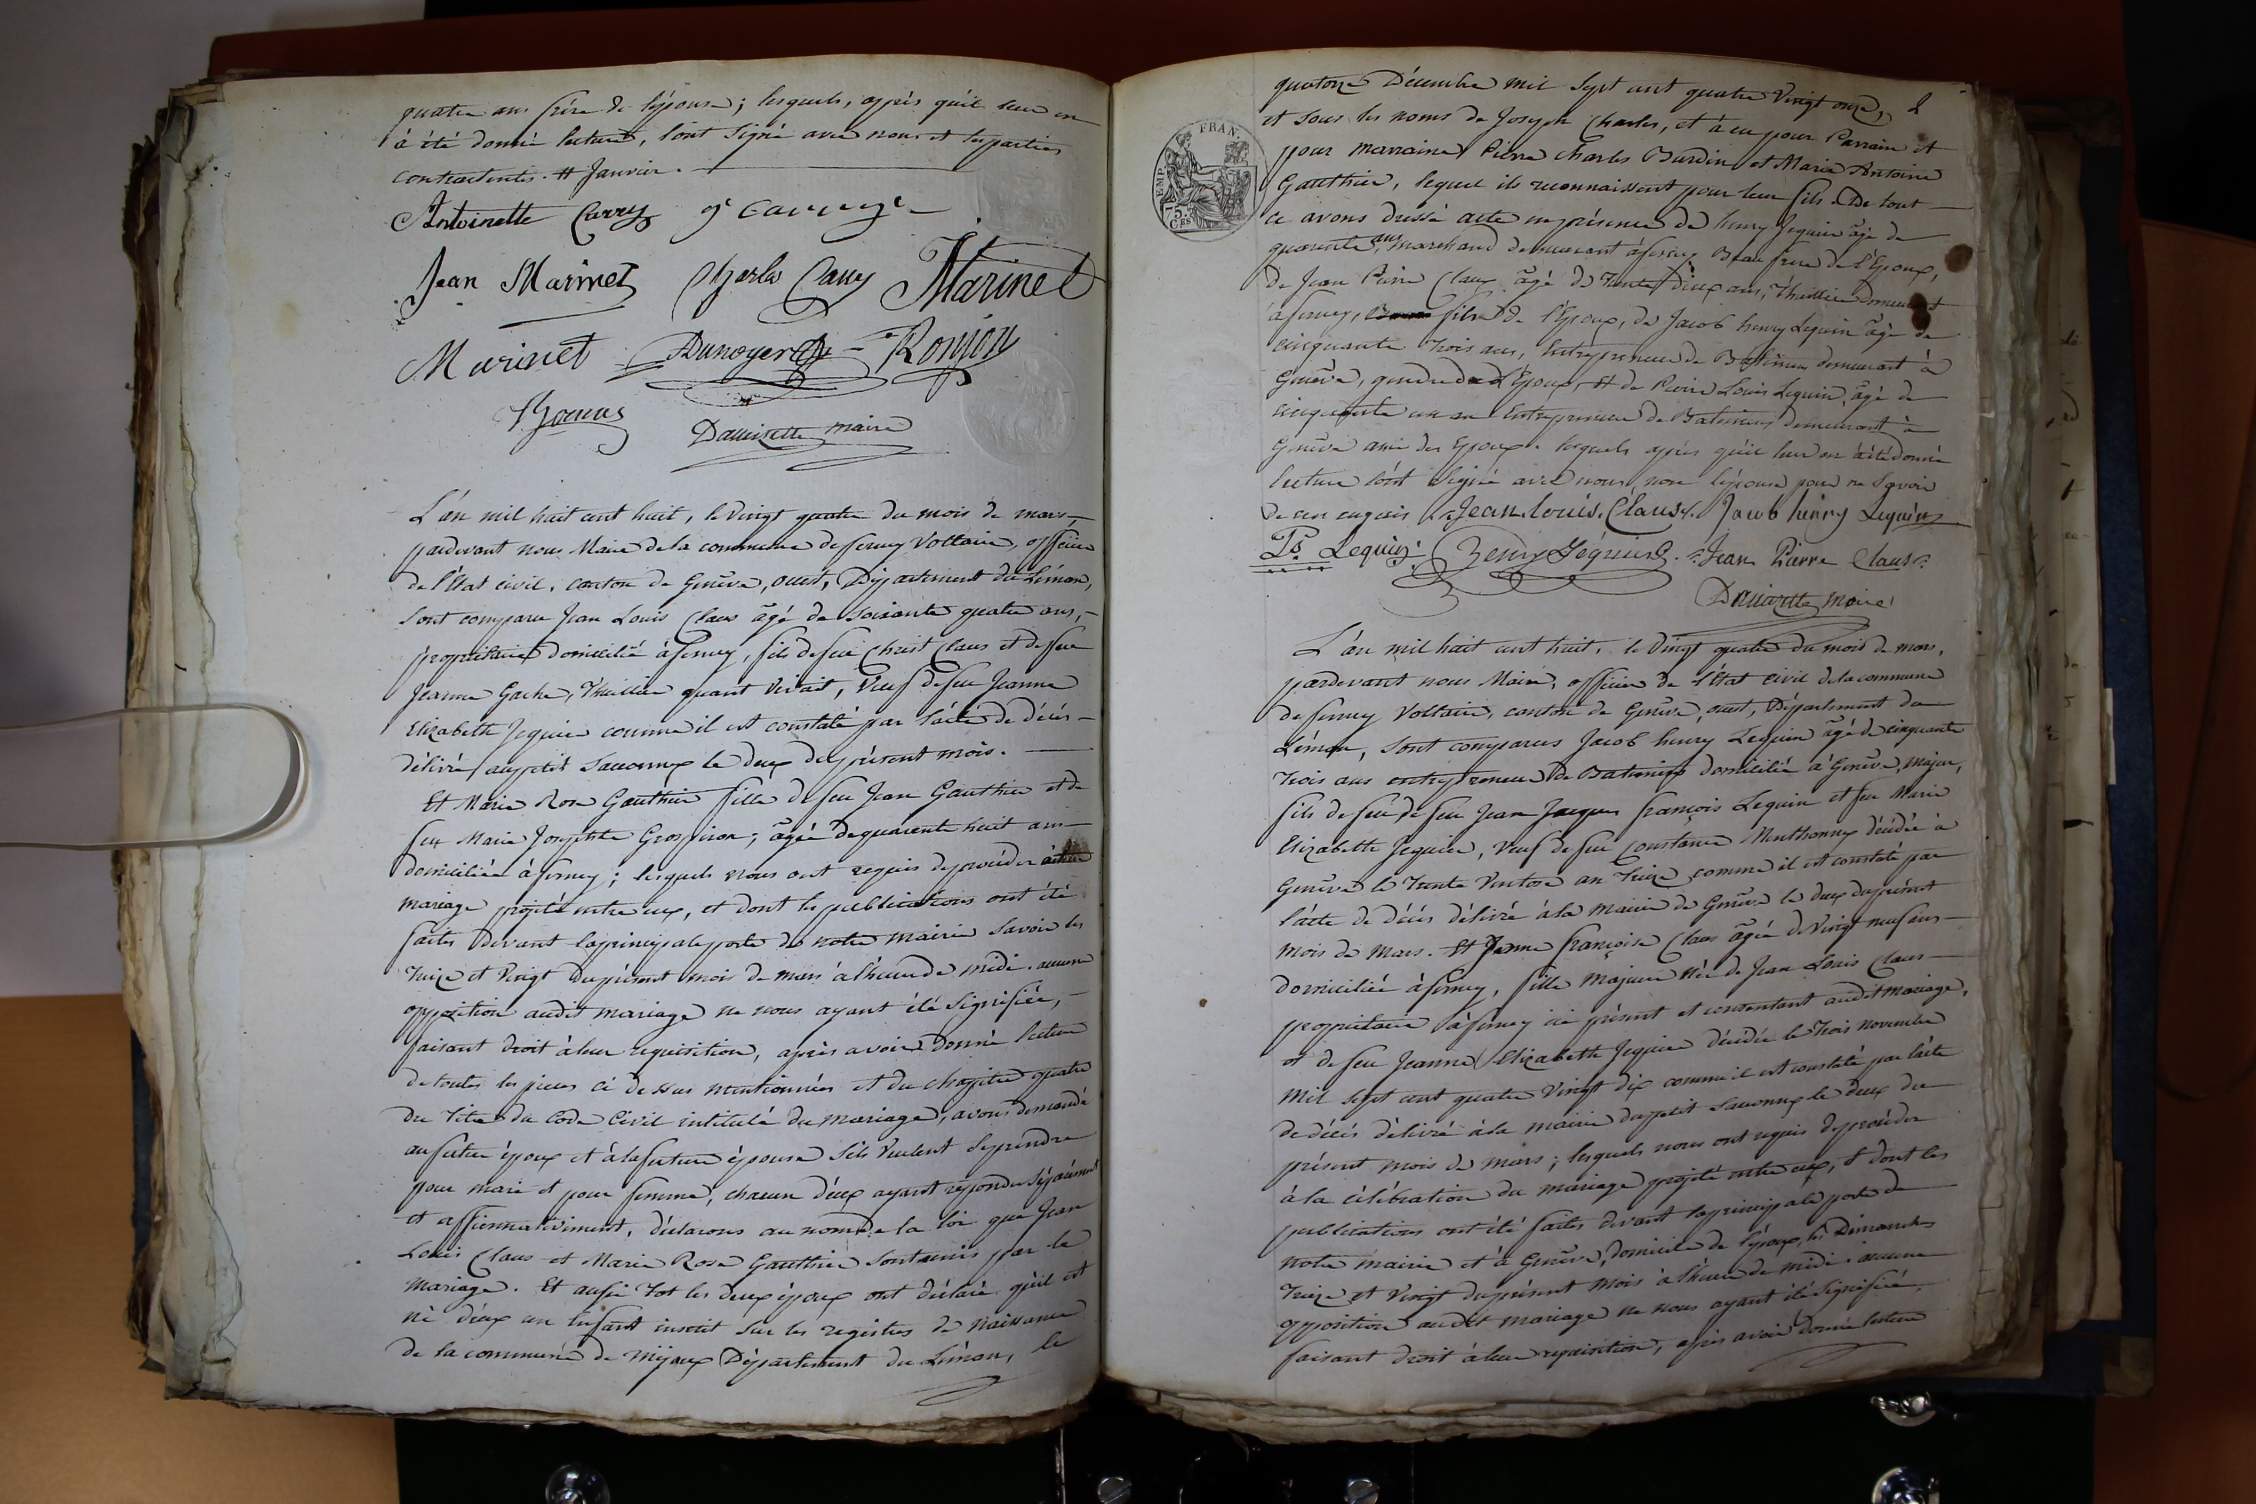 quatre ans frère de l'épouse; lesquels, après qu'il leur en
à été donné lecture, l'ont signé avec nous et les parties
contractantes. # Janvier.
Antoinette Carry
Jean Marinet Charle Carry Marinet
Marinet Dunoyer Roujon
Thomas
Dauizette maire
L'an mil huit cent huit, le vingt quatre du mois de mars,
pardevant nous Maire de la commune de ferney Voltaire, officier
de l'état civil, canton de Genêve, ouest, Département du Léman,
sont comparu Jean Louis Claus âgé de soixante quatre ans,
propriétaire domicilié à ferney, fils de feu Christ Claus et de feue
Jeanne Gache, Thuillier quant vivait, Veuf de feu Jeanne
Elizabeth Jequier comme il est constaté par l'acte de décès
délivré au petit Saconnex le deux du présent mois.
Et Marie Rose Gauthier fille de feu Jean Gauthier et de
feu Marie Josephte Grospiron; âgée de quarente huit ans
domiciliée à ferney; lesquels nous ont requis de procéder
mariage projeté entre eux, et dont les publications ont été
faites devant la principale porte de notre mairie savoir les
treize et vingt du présent mois de mars à l'heure de midi. aucune
opposition audit mariage ne nous ayant été signifiée,
faisant droit à leur requisition, après avoir donné lecture
de toutes les pieces ci dessus mentionnées et du chapitre quatre
du Titre du Code Civil intitulé du mariage, avons demandé
au futur époux et à la future épouse s'ils veulent se prendre
pour mari et pour femme, chacun d'eux ayant répondu séparément
et affirmativement, déclarons au nom de la loi que Jean
Louis Claus et Marie Rose Gauthier sont unis par le
mariage. Et aussi tot les deux époux ont déclaré qu'il est
né d'eux un Enfant inscrit sur les registres de naissance
de la commune de Mijoux Département du Léman, le
quatorze Décembre mil sept cent quatre Vingt onze, 2
et sous les noms de Joseph Charles, et à eu pour Parrain et
pour marraine Pierre Charles Burdin et Marie Antoine
Gauthier, lequel ils reconnaissent pour leur fils. De tout
ce avons dressé acte en présence de henry Jequier âgé de
quarente ans marchand demeurant à ferney Beau frere de l'Epoux,
de Jean Pierre Claus âgé de trente deux ans, Thuillier demeurant
à ferney, fils de l'Epoux, de Jacob henry Lequin âgé de
cinquante trois ans, Entrepreneur de Batimens demeurant à
Genêve, gendre de l'Epoux, et de Pierre Louis Lequin, âgé de
cinquante un an Entrepreneur de Batimens demeurant à
Genêve ami des Epoux. lesquels après qu'il leur en à été donné
lecture l'ont signé avec nous, non l'épouse pour ne savoir
de ces enquis Jean Louis Claus. Jacob henry Lequin
Ls. Lequin. Henry Jéquier. Jean Pierre Claus
Dauizette maire
L'an mil huit cent huit, le Vingt quatre du mois de mars,
pardevant nous Maire, officier de l'Etat civil de la commune
de ferney Voltaire, canton de Genêve, ouest, Département du
Léman, sont comparus Jacob henry Lequin âgé de cinquante
trois ans entrepreneur de Batimens domicilié à Genêve, majeur,
fils de feu de feu Jean Jacques françois Lequin et feu Marie
Elizabeth Jequier, Veuf de feu Constance Menthonnex décédée à
Genêve le Trente Ventose an Treize comme il est constaté par
l'acte de décès délivré à la Mairie de Genêve le deux du présent
mois de mars. Et Jeanne françoise Claus âgée de Vingt neuf ans
domiciliée à ferney, fille majeure née de Jean Louis Claus
propriétaire à ferney ici présent et consentant audit Mariage,
et de feu Jeanne Elizabeth Jequier décédée le trois novembre
mil sept cent quatre Vingt dix comme il est constaté par l'acte
de décès délivré à la mairie du petit Saconnex le deux du
présent mois de mars; lesquels nous ont requis de procéder
à la célébration du mariage projeté entre eux, et dont les
publications ont été faites devant la principale porte de
notre mairie et à Genêve, domicile de l'époux, les Dimanches
Treize et Vingt du présent mois à l'heure de midi. aucune
opposition audit mariage ne nous ayant été signifiée,
faisant droit à leur requisition, après avoir donné lecture